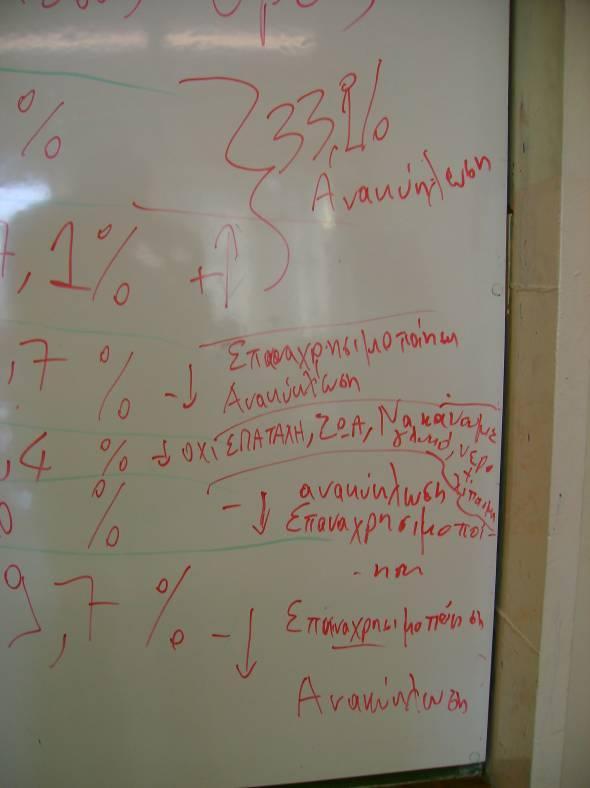 %
33,1%
Ανακύκλωση
7,1% +↑
,7 % -↓ Επαναχρησιμοποίηση
Ανακύκλωση
,4 % ↓ ΟΧΙ ΣΠΑΤΑΛΗ, ΖΩΑ, Να κάναμε
νερο
0 % -↓ ανακύκλωση
Επαναχρησιμοποί-
-ηση
9,7% -↓ Επαναχρησιμοποίηση
Ανακύκλωση